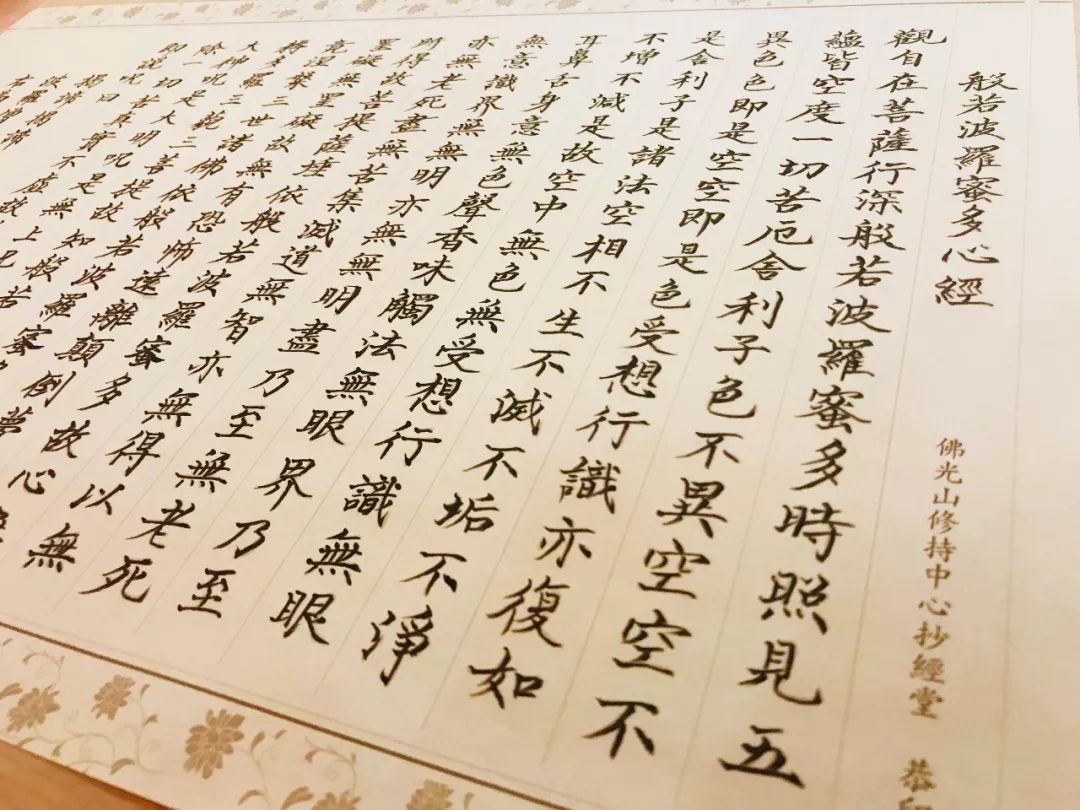 般若波羅蜜多心經
佛光山修持中心抄經堂 恭
觀自在菩薩行深般若波羅蜜多時照見五
蘊皆空度一切苦厄舍利子色不異空空不
異色色即是空空即是色受想行識亦復如
是舍利子是諸法空相不生不滅不垢不淨
不增不減是故空中無色無受想行識無眼
耳鼻舌身意無色聲香味觸法無眼界乃至
無意識界無無明亦無無明盡乃至無老死
亦無老死盡無苦集滅道無智亦無得以無
所得故菩提薩埵依般若波羅蜜多故心無
罣礙無罣礙故無有恐怖遠離顛倒夢
竟涅槃三世諸佛依般若波羅蜜
耨多羅三藐三菩提故知般若
大神咒是大明咒是無上咒
能一切苦真實不虛故
即說咒曰
揭諦